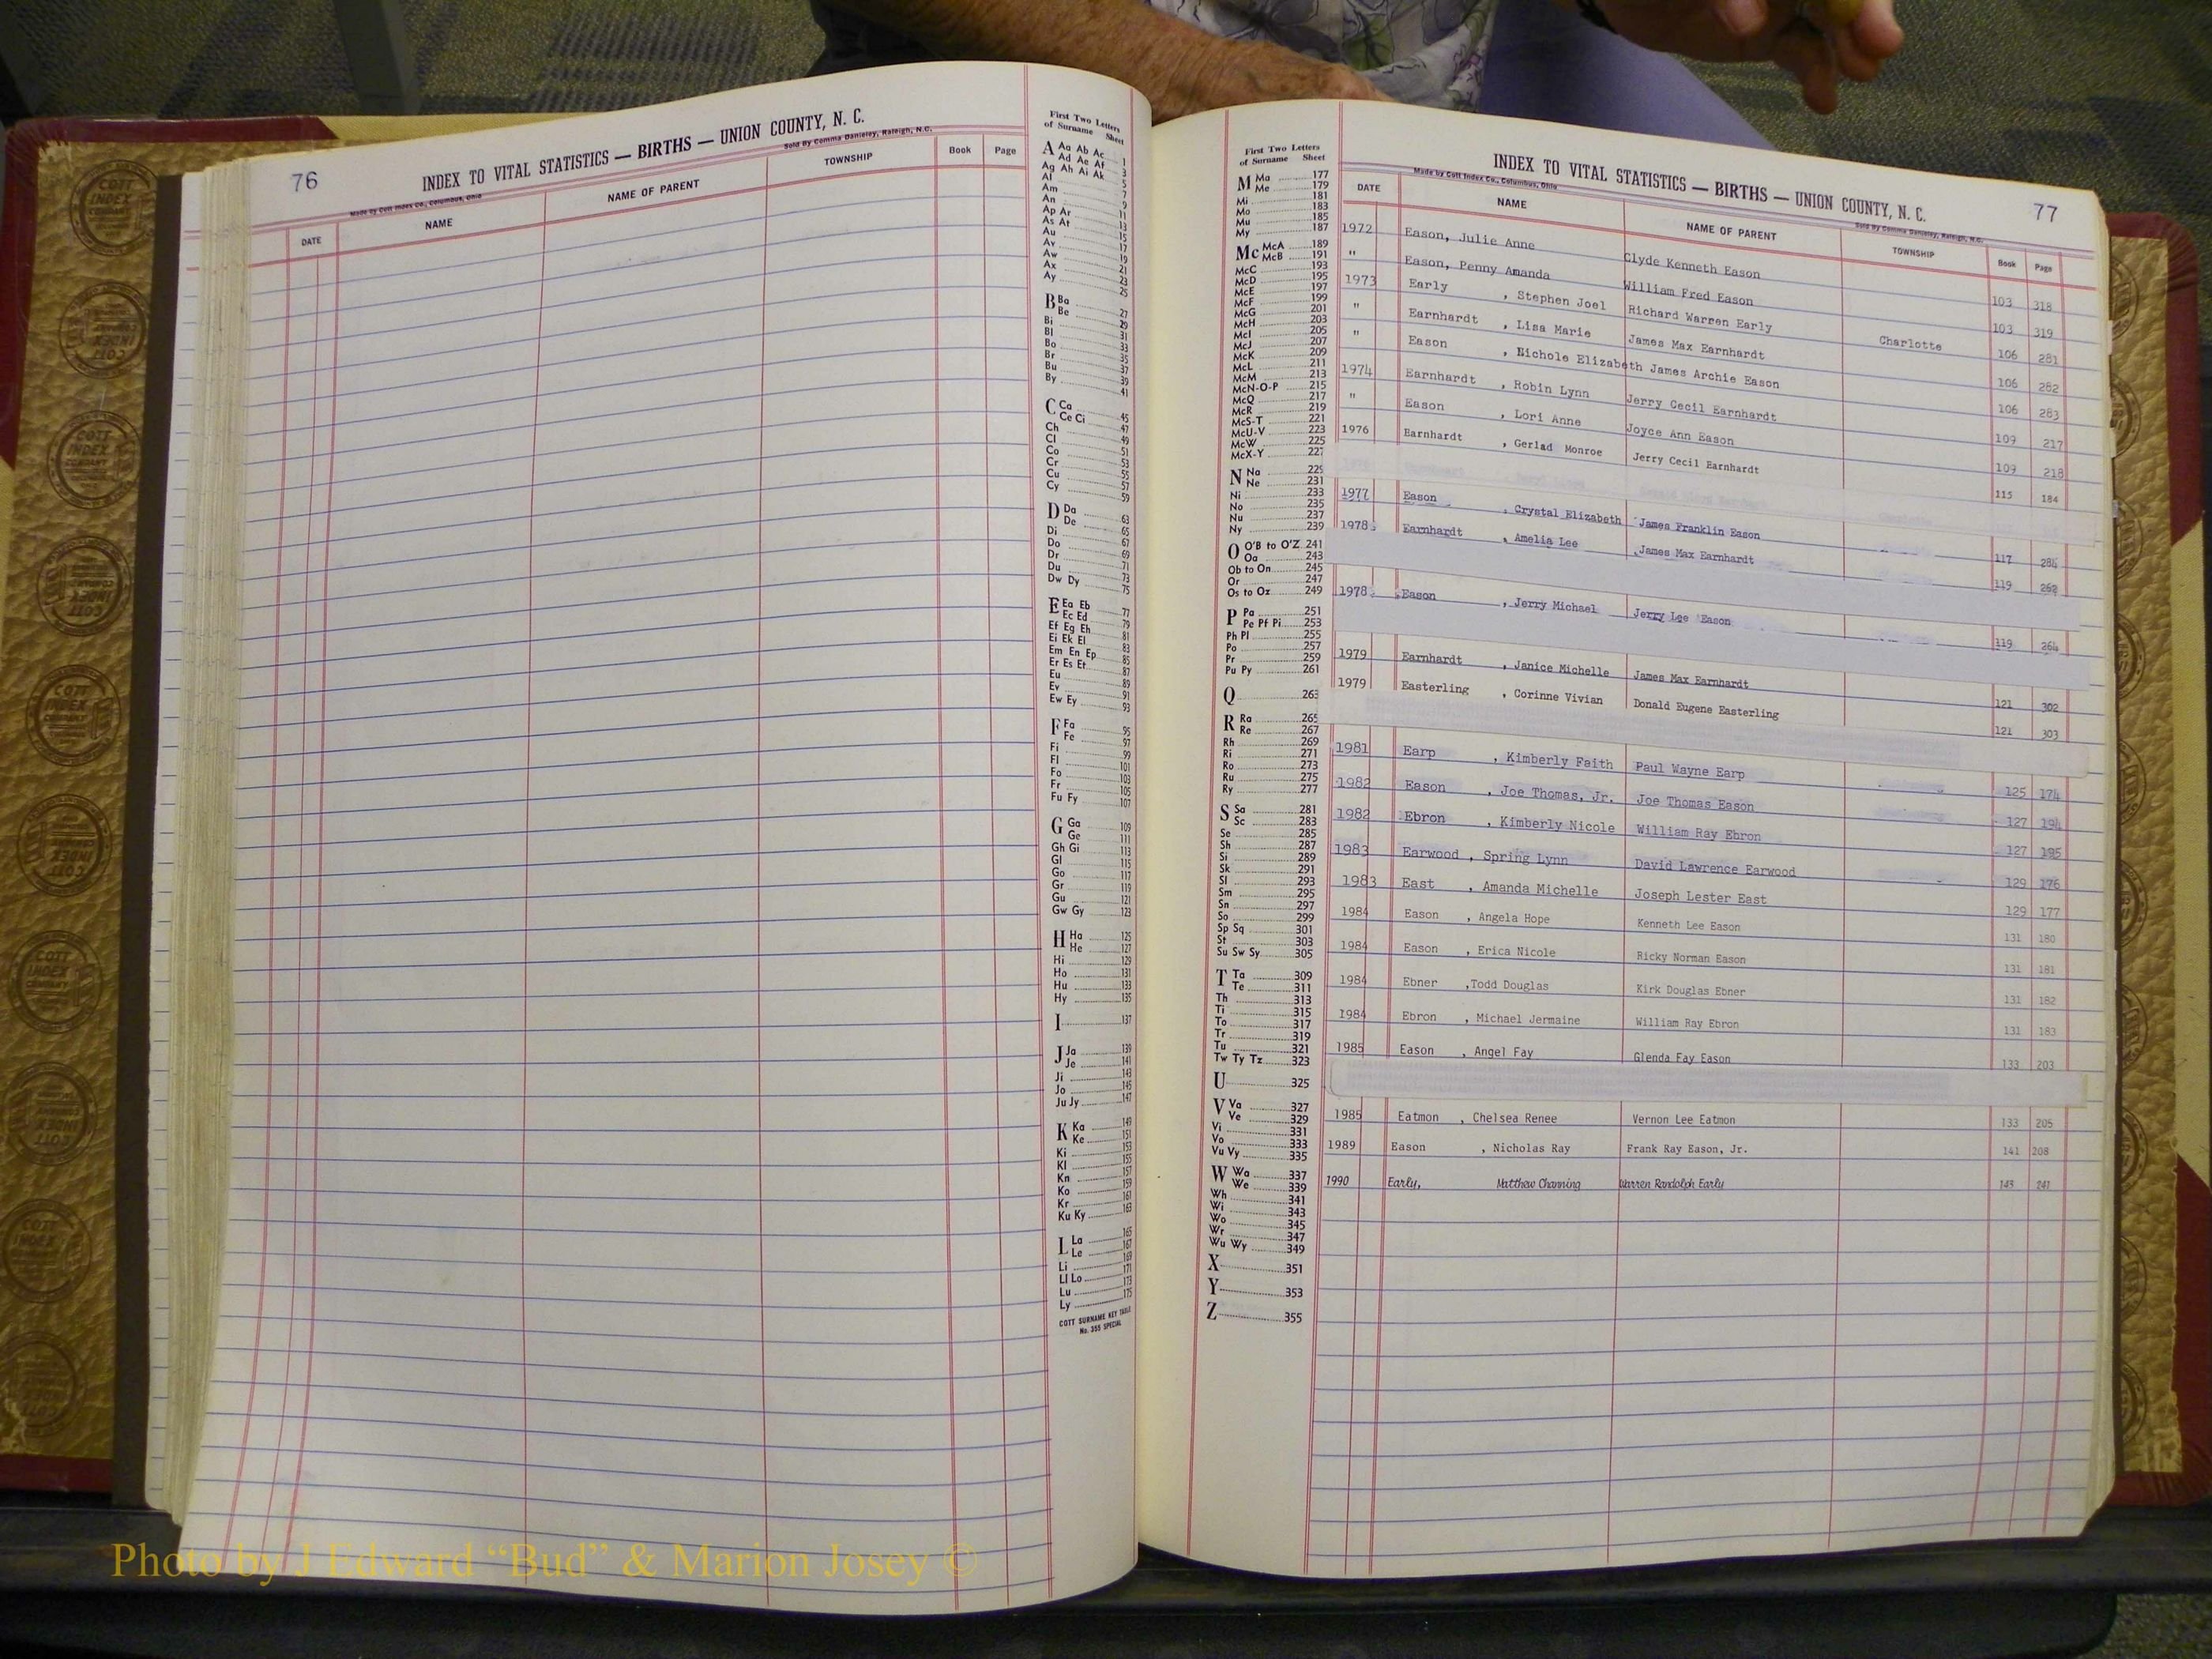 76
INDEX TO VITAL STATISTICS — BIRTHS — UNION COUNTY, N. C.
Made by Cott Index Co., Columbus, Ohio
Sold By Comma Danieley, Raleigh, N.C.
DATE NAME NAME OF PARENT TOWNSHIP Book Page
First Two Letters
of Surname Sheet
A Aa Ab Ac 1
Ad Ae Af 3
Ag Ah Ai Ak 5
Al 7
Am 9
An 11
Ap Ar 13
As At 15
Au 17
Av 19
Aw 21
Ax 23
Ay 25
B Ba 27
Be 29
Bi 31
Bl 33
Bo 35
Br 37
Bu 39
By 41
C Ca 45
Ce Ci 47
Ch 49
Cl 51
Co 53
Cr 55
Cu 57
Cy 59
D Da 63
De 65
Di 67
Do 69
Dr 71
Du 73
Dw Dy 75
E Ea Eb 77
Ec Ed 79
Ef Eg Eh 81
Ei Ek El 83
Em En Ep 85
Er Es Et 87
Eu 89
Ev 91
Ew Ey 93
F Fa 95
Fe 97
Fi 99
Fl 101
Fo 103
Fr 105
Fu Fy 107
G Ga 109
Ge 111
Gh Gi 113
Gl 115
Go 117
Gr 119
Gu 121
Gw Gy 123
H Ha 125
He 127
Hi 129
Ho 131
Hu 133
Hy 135
I 137
J Ja 139
Je 141
Ji 143
Jo 145
Ju Jy 147
K Ka 149
Ke 151
Ki 153
Kl 155
Kn 157
Ko 159
Kr 161
Ku Ky 163
L La 165
Le 167
Li 169
Ll Lo 171
Lu 173
Ly 175
COTT SURNAME KEY TABLE
No. 355 SPECIAL
First Two Letters
of Surname Sheet
M Ma 177
Me 179
Mi 181
Mo 183
Mu 185
My 187
Mc McA 189
McB 191
McC 193
McD 195
McE 197
McF 199
McG 201
McH 203
McI 205
McJ 207
McK 209
McL 211
McM 213
McN-O-P 215
McQ 217
McR 219
McS-T 221
McU-V 223
McW 225
McX-Y 227
N Na 229
Ne 231
Ni 233
No 235
Nu 237
Ny 239
O O'B to O'Z 241
Oa 243
Ob to On 245
Or 247
Os to Oz 249
P Pa 251
Pe Pf Pi 253
Ph Pl 255
Po 257
Pr 259
Pu Py 261
Q 263
R Ra 265
Re 267
Rh 269
Ri 271
Ro 273
Ru 275
Ry 277
S Sa 281
Sc 283
Se 285
Sh 287
Si 289
Sk 291
Sl 293
Sm 295
Sn 297
So 299
Sp Sq 301
St 303
Su Sw Sy 305
T Ta 309
Te 311
Th 313
Ti 315
To 317
Tr 319
Tu 321
Tw Ty Tz 323
U 325
V Va 327
Ve 329
Vi 331
Vo 333
Vu Vy 335
W Wa 337
We 339
Wh 341
Wi 343
Wo 345
Wr 347
Wu Wy 349
X 351
Y 353
Z 355
77
INDEX TO VITAL STATISTICS — BIRTHS — UNION COUNTY, N. C.
Made by Cott Index Co., Columbus, Ohio
Sold By Comma Danieley, Raleigh, N.C.
DATE NAME NAME OF PARENT TOWNSHIP Book Page
1972 Eason, Julie Anne Clyde Kenneth Eason 103 318
" Eason, Penny Amanda William Fred Eason 103 319
1973 Early , Stephen Joel Richard Warren Early Charlotte 106 281
" Earnhardt , Lisa Marie James Max Earnhardt 106 282
" Eason , Nichole Elizabeth James Archie Eason 106 283
1974 Earnhardt , Robin Lynn Jerry Cecil Earnhardt 109 217
" Eason , Lori Anne Joyce Ann Eason 109 218
1976 Earnhardt , Gerlad Monroe Jerry Cecil Earnhardt 115 184
1977 Eason , Crystal Elizabeth James Franklin Eason 117 284
1978 Earnhardt , Amelia Lee James Max Earnhardt 119 262
1978 Eason , Jerry Michael Jerry Lee Eason 119 264
1979 Earnhardt , Janice Michelle James Max Earnhardt 121 302
1979 Easterling , Corinne Vivian Donald Eugene Easterling 121 303
1981 Earp , Kimberly Faith Paul Wayne Earp 125 174
1982 Eason , Joe Thomas, Jr. Joe Thomas Eason 127 194
1982 Ebron , Kimberly Nicole William Ray Ebron 127 195
1983 Earwood , Spring Lynn David Lawrence Earwood 129 176
1983 East , Amanda Michelle Joseph Lester East 129 177
1984 Eason , Angela Hope Kenneth Lee Eason 131 180
1984 Eason , Erica Nicole Ricky Norman Eason 131 181
1984 Ebner ,Todd Douglas Kirk Douglas Ebner 131 182
1984 Ebron , Michael Jermaine William Ray Ebron 131 183
1985 Eason , Angel Fay Glenda Fay Eason 133 203
1985 Eatmon , Chelsea Renee Vernon Lee Eatmon 133 205
1989 Eason , Nicholas Ray Frank Ray Eason, Jr. 141 208
1990 Early, Matthew Channing Warren Randolph Early 143 241
Photo by J Edward “Bud” & Marion Josey ©